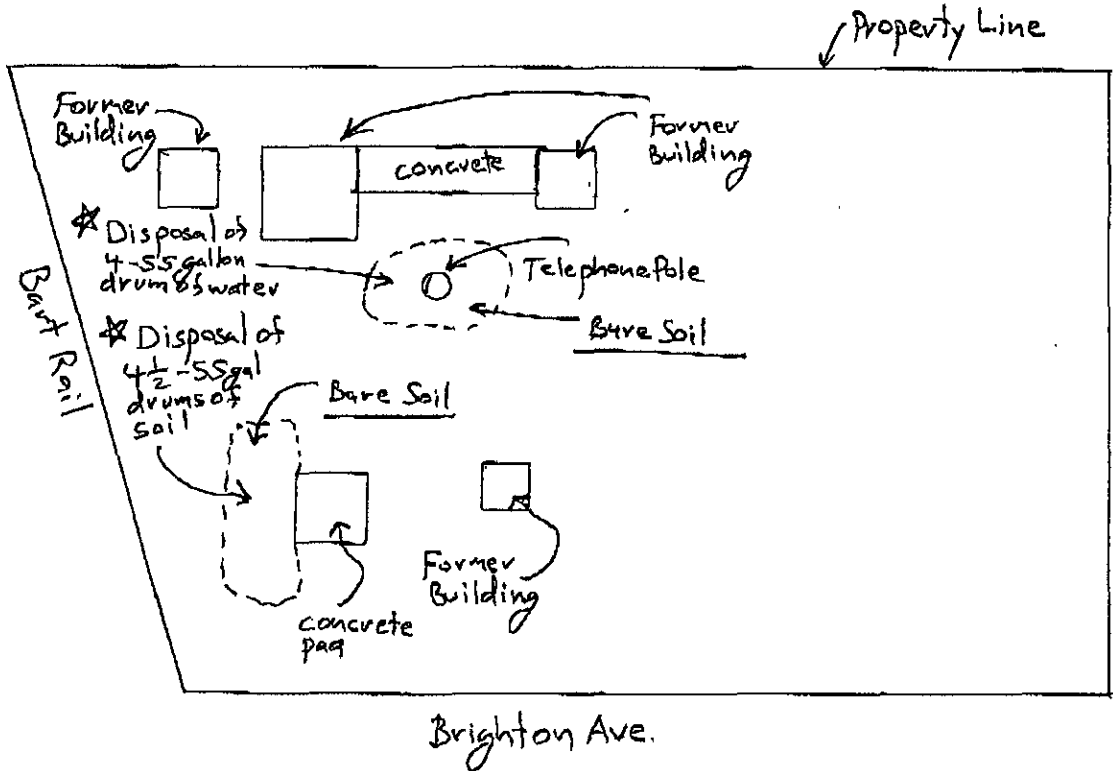 Property Line
Former
Building
Former
Building
concrete
☆ Disposal of
4-55gallon
drum of water
Telephone Pole
Bare Soil
Bart Rail
☆ Disposal of
4½-55gal
drums of
soil
Bare Soil
Former
Building
concrete
pad
Brighton Ave.